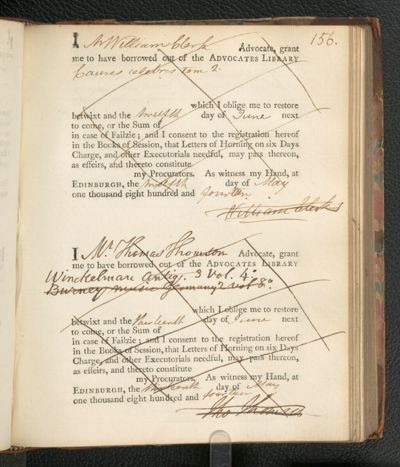 156.
I Mr William Clerk Advocate, grant
me to have borrowed out of the ADVOCATES LIBRARY
Causes celebres tom 2.
which I oblige me to restore
betwixt and the twelfth day of June next
to come, or the Sum of
in case of Failzie; and I consent to the registration hereof
in the Books of Session, that Letters of Horning on six Days
Charge, and other Executorials needful, may pass thereon,
as effeirs, and thereto constitute
my Procurators. As witness my Hand, at
EDINBURGH, the twelfth day of May
one thousand eight hundred and fourteen
William Clerk
I Mr. Thomas Thomson Advocate, grant
me to have borrowed out of the ADVOCATES LIBRARY
Winckelman Antiq. 3 Vol. 4o
Burney music Germany 2 vol 8o
which I oblige me to restore
betwixt and the thirteenth day of June next
to come, or the Sum of
in case of Failzie; and I consent to the registration hereof
in the Books of Session, that Letters of Horning on six Days
Charge, and other Executorials needful, may pass thereon,
as effeirs, and thereto constitute
my Procurators. As witness my Hand, at
EDINBURGH, the thirteenth day of May
one thousand eight hundred and fourteen
Tho Thomson